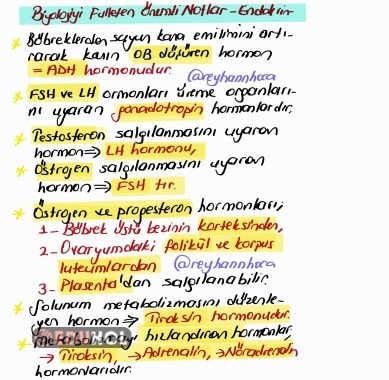 Biyolojiyi Fulleten Önemli Notlar - Endokrin-
* Böbreklerden suyun kana emilimini artı-
rarak kanın OB düşüren hormon
= ADH hormonudur. @reyhannhoca
* FSH ve LH ormonları üreme organları-
nı uyaran gonadotropin hormonlardır.
* Testosteron salgılanmasını uyaran
hormon⇒ LH hormonu,
* Östrojen salgılanmasını uyaran
hormon⇒ FSH tır.
* Östrojen ve progesteron hormonları;
1- Böbrek üstü bezinin korteksinden,
2- Ovaryumdaki folikül ve korpus
luteumlardan @reyhannhoca
3- Plasenta'dan salgılanabilir.
* Solunum metabolizmasını düzenle-
yen hormon⇒ Tiroksin hormonudur.
* Metabolizmayı hızlandıran hormonlar,
→ Tiroksin, → Adrenalin, → Nöradrenalin
hormonlarıdır.